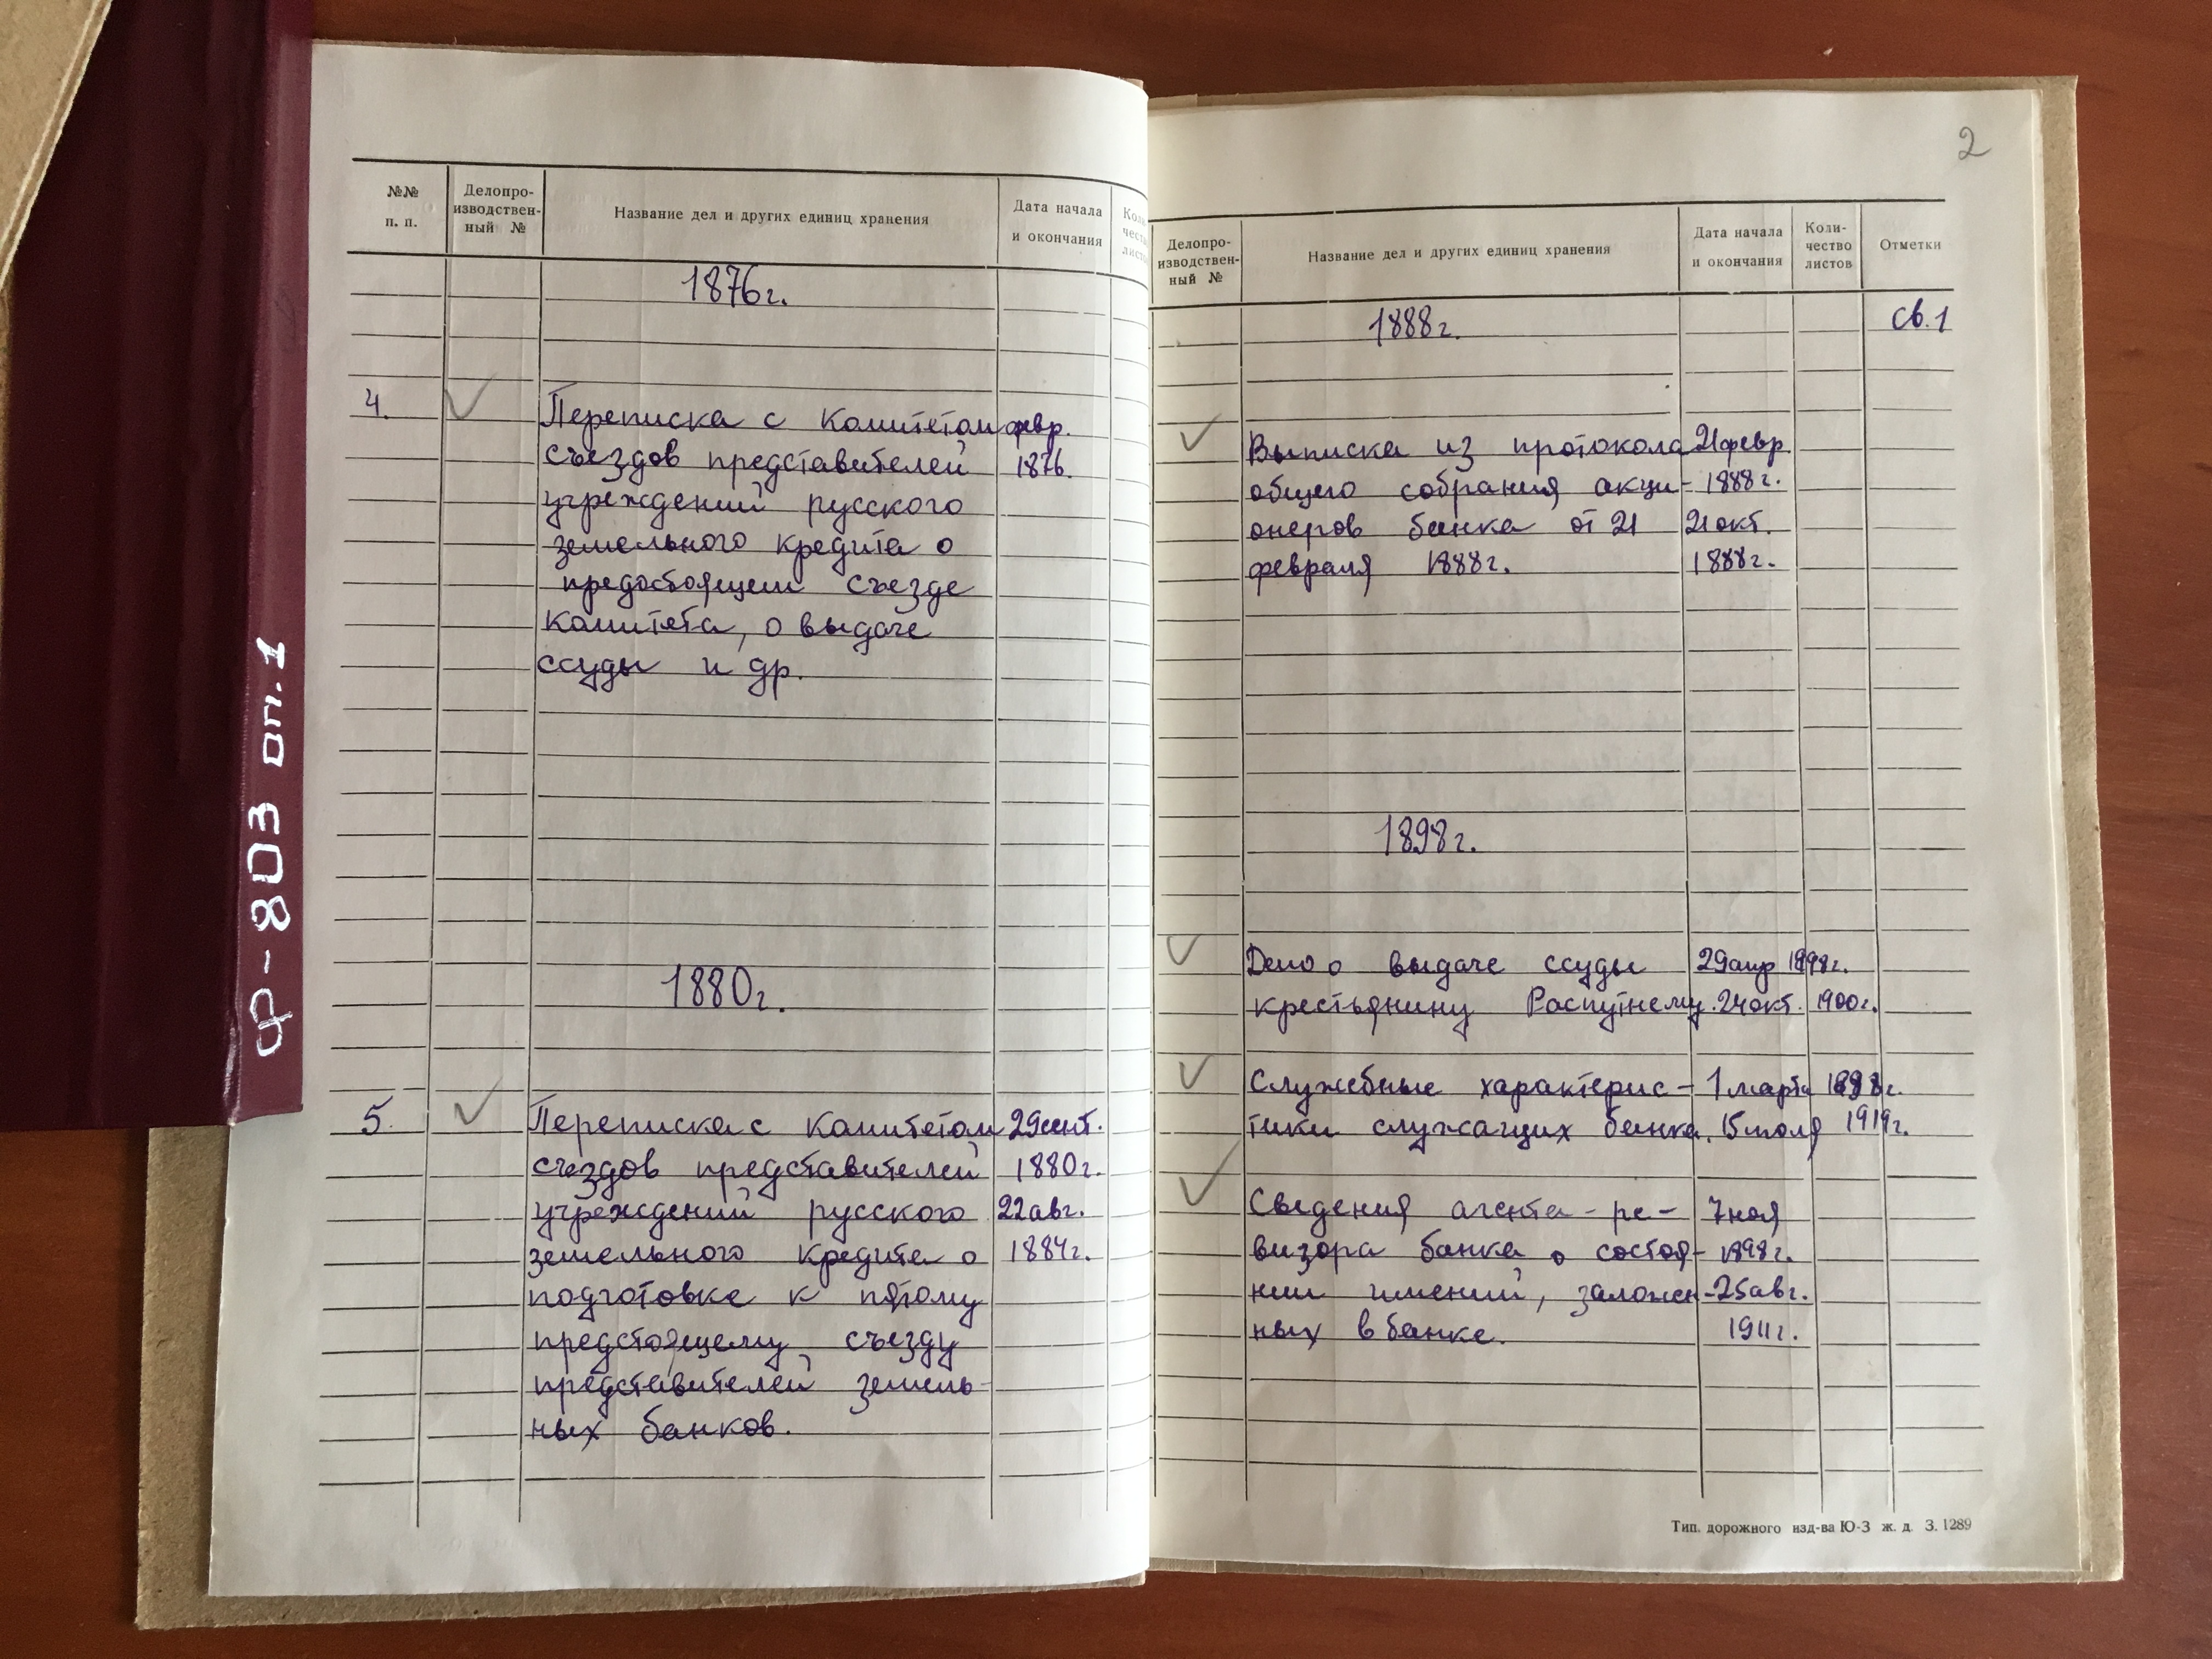 Ф-803 оп. 1
№№ п. п.
Делопроизводственный №
Название дел и других единиц хранения
Дата начала и окончания
1876г.
4.
Переписка с Комитетом февр.
съездов представителей 1876.
учреждений русского
земельного кредита о
предостоящем съезде
Комитета, о выдаче
ссуды и др.
1880г.
5.
Переписка с Комитетом 29сент.
съездов представителей 1880г.
учреждений русского 22авг.
земельного кредита о 1884г.
подготовке к пятому
предстоящему съезду
представителей земель-
ных банков.
2
Делопро-
изводствен-
ный №
Название дел и других единиц хранения
Дата начала
и окончания
Коли-
чество
листов
Отметки
1888г. св.1
Выписка из протокола 21февр
общего собрания акци- 1888г.
онеров банка от 21 21окт.
февраля 1888г. 1888г.
1898г.
Дело о выдаче ссуды 29апр 1898г.
крестьянину Распутнему. 24окт. 1900г.
Служебные характерис- 1 марта 1898г.
тики служащих банка. 15июля 1919г.
Сведения агента-ре- 7ноя
визора банка о состоя- 1898г.
нии имений, заложен- 25авг.
ных в банке. 1911г.
Тип. дорожного изд-ва Ю-З ж. д. З. 1289